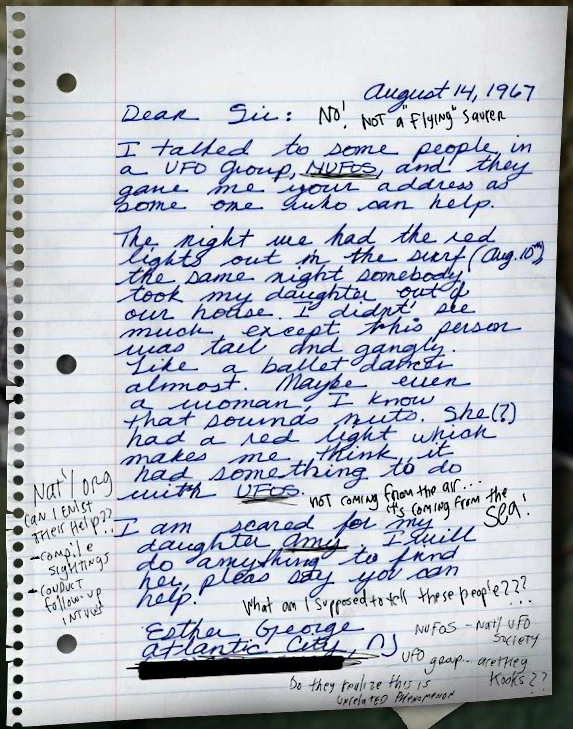 August 14, 1967
Dear Sir: No! Not a "flying" saucer
I talked to some people in
a UFO group, NUFOS, and they
gave me your address as
some one who can help.
The night we had the red
lights out in the surf (Aug. 10th)
the same night somebody
took my daughter out of
our house. I didn't see
much, except this person
was tall and gangly.
Like a ballet dancer
almost. Maybe even
a woman, I know
that sounds nuts. She(?)
had a red light which
makes me think it
had something to do
with UFOS.
not coming from the air...
it's coming from the
SEA!
I am scared for my
daughter Amy. I will
do anything to find
her, pleas say you can
help.
What am I supposed to tell these people???
...
Esther George
Atlantic City, NJ
Nat'l org
can I enlist
their help??
- compile
sightings
- conduct
follow-up
NUFOS - Nat'l UFO
Society
UFO group... are they
kooks??
Do they realize this is
unrelated phenomenon